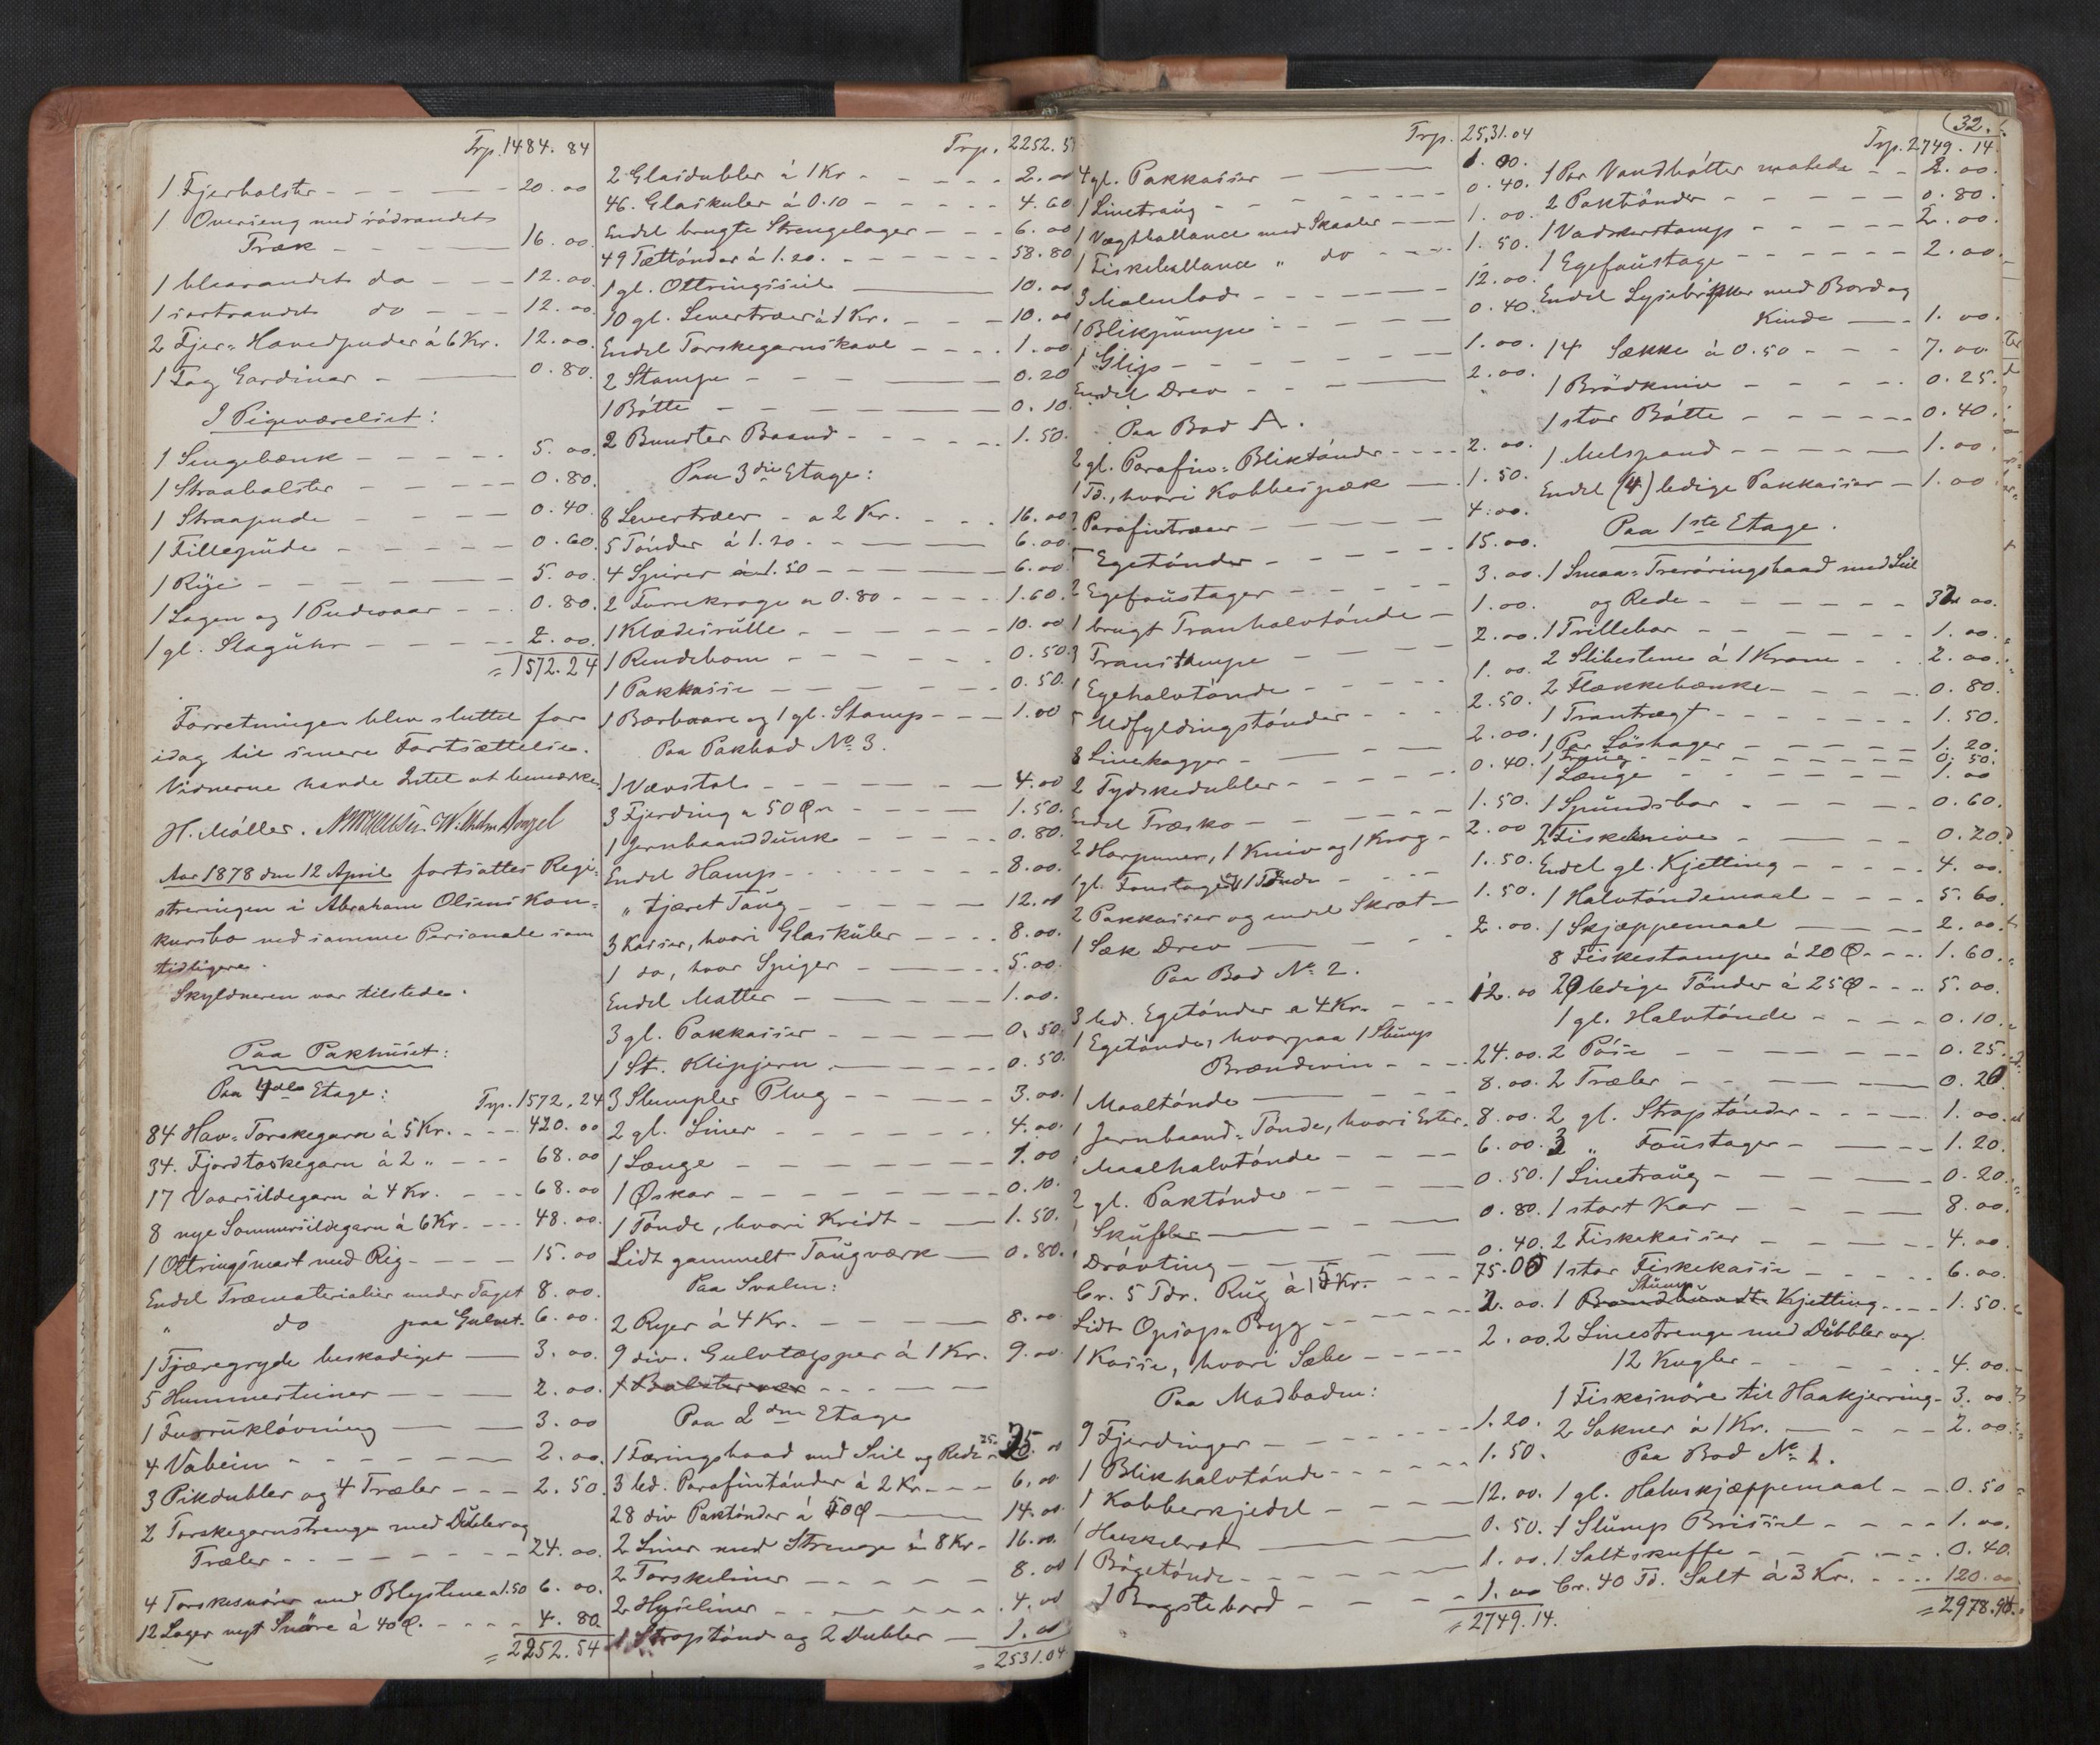 Trp. 1484. 84
1 Fjerholster - - - 20. 00
1 Overseng med rödrandet
Træk - - - 16. 00.
1 blaarandet do - - - 12. 00.
1 sortrandet do - - - 12. 00.
2 Fjer= Hovedpuder á 6 Kr. 12. 00.
1 Fag Gardiner - 0. 80.
I Pigeværelset:
1 Sengebænk - - - 5. 00.
1 Straaholster - - - 0. 80.
1 Straapude - - - 0. 40.
1 Fillepude - - - 0. 60.
1 Rye - - - 5. 00.
1 Lagen og 1 Pudevaar - - - 0. 80.
1 gl. Slaguhr - - - 2. 00.
= 1572. 24
Forretningen blev sluttet for
idag til senere Fortsættelse.
Vidnerne havde Intet at bemærke.
H. Möller. Wilhelm
Aar 1878 den 12 April fortsattes Regi=
streringen i Abraham Olsens Kon=
kursbo ved samme Personale som
tidligere.
Skyldneren var tilstede.
Paa Pakhuset:
Paa 4de Etage: Trp. 1572. 24
84 Hav= Torskegarn á 5 Kr. - - - 420. 00
34. Fjordtoskegarn á 2 " - - - 68. 00
17 Vaarsildegarn á 4 Kr. - - - 68. 00
8 nye Sommersildegarn á 6 Kr. - - - 48. 00.
1 Ottringsmast med Rig - - - 15. 00
Endel Træmaterialier under Taget 8. 00.
" do paa Gulvet. 6. 00.
1 Tjæregryde beskadiget - 3. 00.
5 Hummerteiner - - - 2. 00.
1 Furruklövning - 3. 00
4 Vabein - - - 2. 00.
3 Pikdubler og 4 Træler - - - 2. 50.
2 Torskegarnstrenge med Dubler og
Træler - - - 24. 00.
4 Torskesnörer med Blystene a 1.50 6. 00.
12 Lager nyt Snöre á 40 Ø. - - - 4. 80.
= 2252. 54
Trp. 2252. 5
2 Glasdubler á 1 Kr - - - 2. 00
46. Glaskuler á 0.10 - - - 4. 60
Endel brugte Strengelager - - - 6. 00
49 Tættönder á 1.20. - - - 58. 80
1 gl. Ottringsseil - 10. 00
10 gl. Levertræer á 1 Kr. - - - 10. 00
Endel Torskegarnskavl - - - 1. 00
2 Stampe - - - 0. 20
1 Bötte - - - 0. 10.
2 Bundter Baand - - - 1. 50.
Paa 3die Etage:
8 Levertræer - a 2 Kr. - - - 16. 00
5 Tönder á 1.20 - - - 6. 00
4 Spirer á 1.50 - - - 6. 00
2 Furrekroge a 0.80 - - - 1. 60.
1 Klædesrulle - - - 10. 00
1 Rendebom - - - 0. 50.
1 Pakkasse - - - 0. 50.
1 Bærbaare og 1 gl. Stamp - - - 1. 00
Paa Pakbod No. 3.
1 Vævstol - - - 4. 00
3 Fjerding a 50 Ø - - - 1. 50.
1 Jernbaanddunk - - - 0. 80.
Endel Hamp - - - 8. 00.
" tjæret Taug - - - 12. 00
3 Kasser, hvori Glaskuler - - - 8. 00.
1 do, hvor Spiger - - - 5. 00.
Endel Matter - - - 1. 00.
3 gl. Pakkasser - - - 0. 50.
1 St. Klipjern - - - 0. 50.
3 Stumpler Plug - - - 3. 00.
2 gl. Liner - - - 4. 00.
1 Længe - - - 1. 00
1 Øskar - - - 0. 10.
1 Tönde, hvori Kridt - 1. 50.
Lidt gammelt Taugværk - 0. 80.
Paa Svalen:
2 Ryer á 4 Kr. - - - 8. 00
9 div. Gulvtæpper á 1 Kr. 9. 00
1 Bolstervær - - -
Paa 2den Etage
1 Færingsbaad med Seil og Rede 25. 00
3 led. Parafintönder á 2 Kr. - - - 6. 00
28 div Paktönder á 50 Ø - 14. 00
2 Liner med Strenge á 8 Kr - 16. 00.
2 Torskeliner - - - 8. 00
2 Hyseliner - - - 4. 00
1 Stroptönde og 2 Dubler - 1. 00
= 2531. 04
Trp. 25,31. 04
4 gl. Pakkasser - 1. 00.
1 Linetraug - - - 0. 40.
1 Vægtballance med Skaaler - - - 1. 00.
1 Fiskeballance " do - - - 1. 50.
3 Malmlod - - - 12. 00.
1 Blikpumpe - - - 0. 40.
1 Glip - - - 1. 00.
Endel Drev - - - 2. 00.
Paa Bod A.
2 gl. Parafin= Bliktönder - - - 2. 00.
1 Td., hvori Kobbespæk - 1. 50.
2 Parafintræer - 4. 00.
5 Egetönder - - - 15. 00.
2 Egefoustager - - - 3. 00.
1 brugt Tranhalvtönde - 1. 00.
3 Transtampe - 2. 00.
1 Egehalvtönde - - - 1. 00.
5 Udfyldingstönder - - - 2. 50.
8 Linekagger - 2. 00.
2 Tydskedubler - - - 0. 40.
Endel Træsko - - - 1. 50.
2 Harpuner, 1 Kniv og 1 Krog - 2. 00
1 gl. Foustage & 1 Tönde - - - 1. 50.
2 Pakkasser og endel Skrot - 1. 50.
1 Sæk Drev - 2. 00.
Paa Bod No. 2.
3 led. Egetönder a 4 Kr. - - - 12. 00
1 Egetönde, hvorpaa 1 Slump
Brændevin - - - 24. 00.
1 Maaltönde - 8. 00.
1 Jernbaand= Tönde, hvori Erter. 8. 00.
1 Maalhalvtönde - - - 6. 00.
2 gl. Paktönder - - - 0. 50.
1 Skuffler - 0. 80.
1 Drövting - - - 0. 40.
Cr. 5 Tdr. Rug á 15 Kr. - - - 75. 00
Lidt Opsop= Bryg - - - 2. 00.
1 Kasse, hvori Sæbe - - - 2. 00.
Paa Madboden:
9 Fjerdinger - - - 1. 20.
1 Blikhalvtönde - - - 1. 50.
1 Kobberkjedel - - - 12. 00.
1 - 0. 50.
1 Bögetönde - - - 1. 00.
1 Bagstebord - - - 1. 00
= 2749. 14.
32.
Trp. 2749. 14
1 Par Vandbötter malede - - 2. 00.
2 Paktönder - - - 0. 80.
1 Vadskerstamp - - - 2. 00.
1 Egefoustage - - - 2. 00.
Endel Lysebrikker med Bord og
Kinde - 1. 00.
14 Sække á 0.50 - - - 7. 00.
1 Brödkniv - - - 0. 25.
1 stor Bötte - - - 0. 40.
1 Melspand - - - 1. 00.
Endel (4) ledige Pakkasser - 1. 00
Paa 1ste Etage.
1 Smaa= Treröringsbaad med Seil
og Rede - - - 32. 00.
1 Trillebor - - - 1. 00.
2 Slibestene á 1 Krone - - 2. 00.
2 Flækkebænke - - - 0. 80.
1 Trantragt - - - 1. 50.
1 Par Löshager - - - 1. 20.
1 Traug - - - 0. 50.
1 Længe - - - 1. 00
1 Spundsbor - - - 0. 60.
2 Fiskeknive - - - 0. 20
Endel gl. Kjetting - - - 4. 00.
1 Halvtöndemaal - - - 5. 60.
1 Skjæppemaal - 2. 00.
8 Fiskestampe á 20 Ø - - - 1. 60.
20 ledige Tönder á 25 Ø - - - 5. 00.
1 gl. Halvtönde - - - 0. 10.
2 Pöse - - - 0. 25.
2 Træler - - - 0. 20.
2 gl. Stroptönder - - - 1. 00.
3 " Foustager - 1. 20.
1 Linetraug - - - 0. 20.
1 stort Kar - - - 8. 00.
2 Fiskekasser - - - 4. 00.
1 stor Fiskekasse - - - 6. 00.
Stump
1 Kjetting - - - 1. 50.
2 Linestrenge med Dubbler og
12 Kugler - - - 4. 00.
1 Fiskesnöre til Haakjerring - 3. 00.
2 Sokner á 1 Kr. - - - 2. 00.
Paa Bod No. 1.
1 gl. Halvskjæppemaal - - 0. 50
1 Slump Brissel - - - 1. 00.
1 Saltskuffe - - - 0. 40.
Cr. 40 Td. Salt á 3 Kr. - - - 120. 00
= 2978. 94.